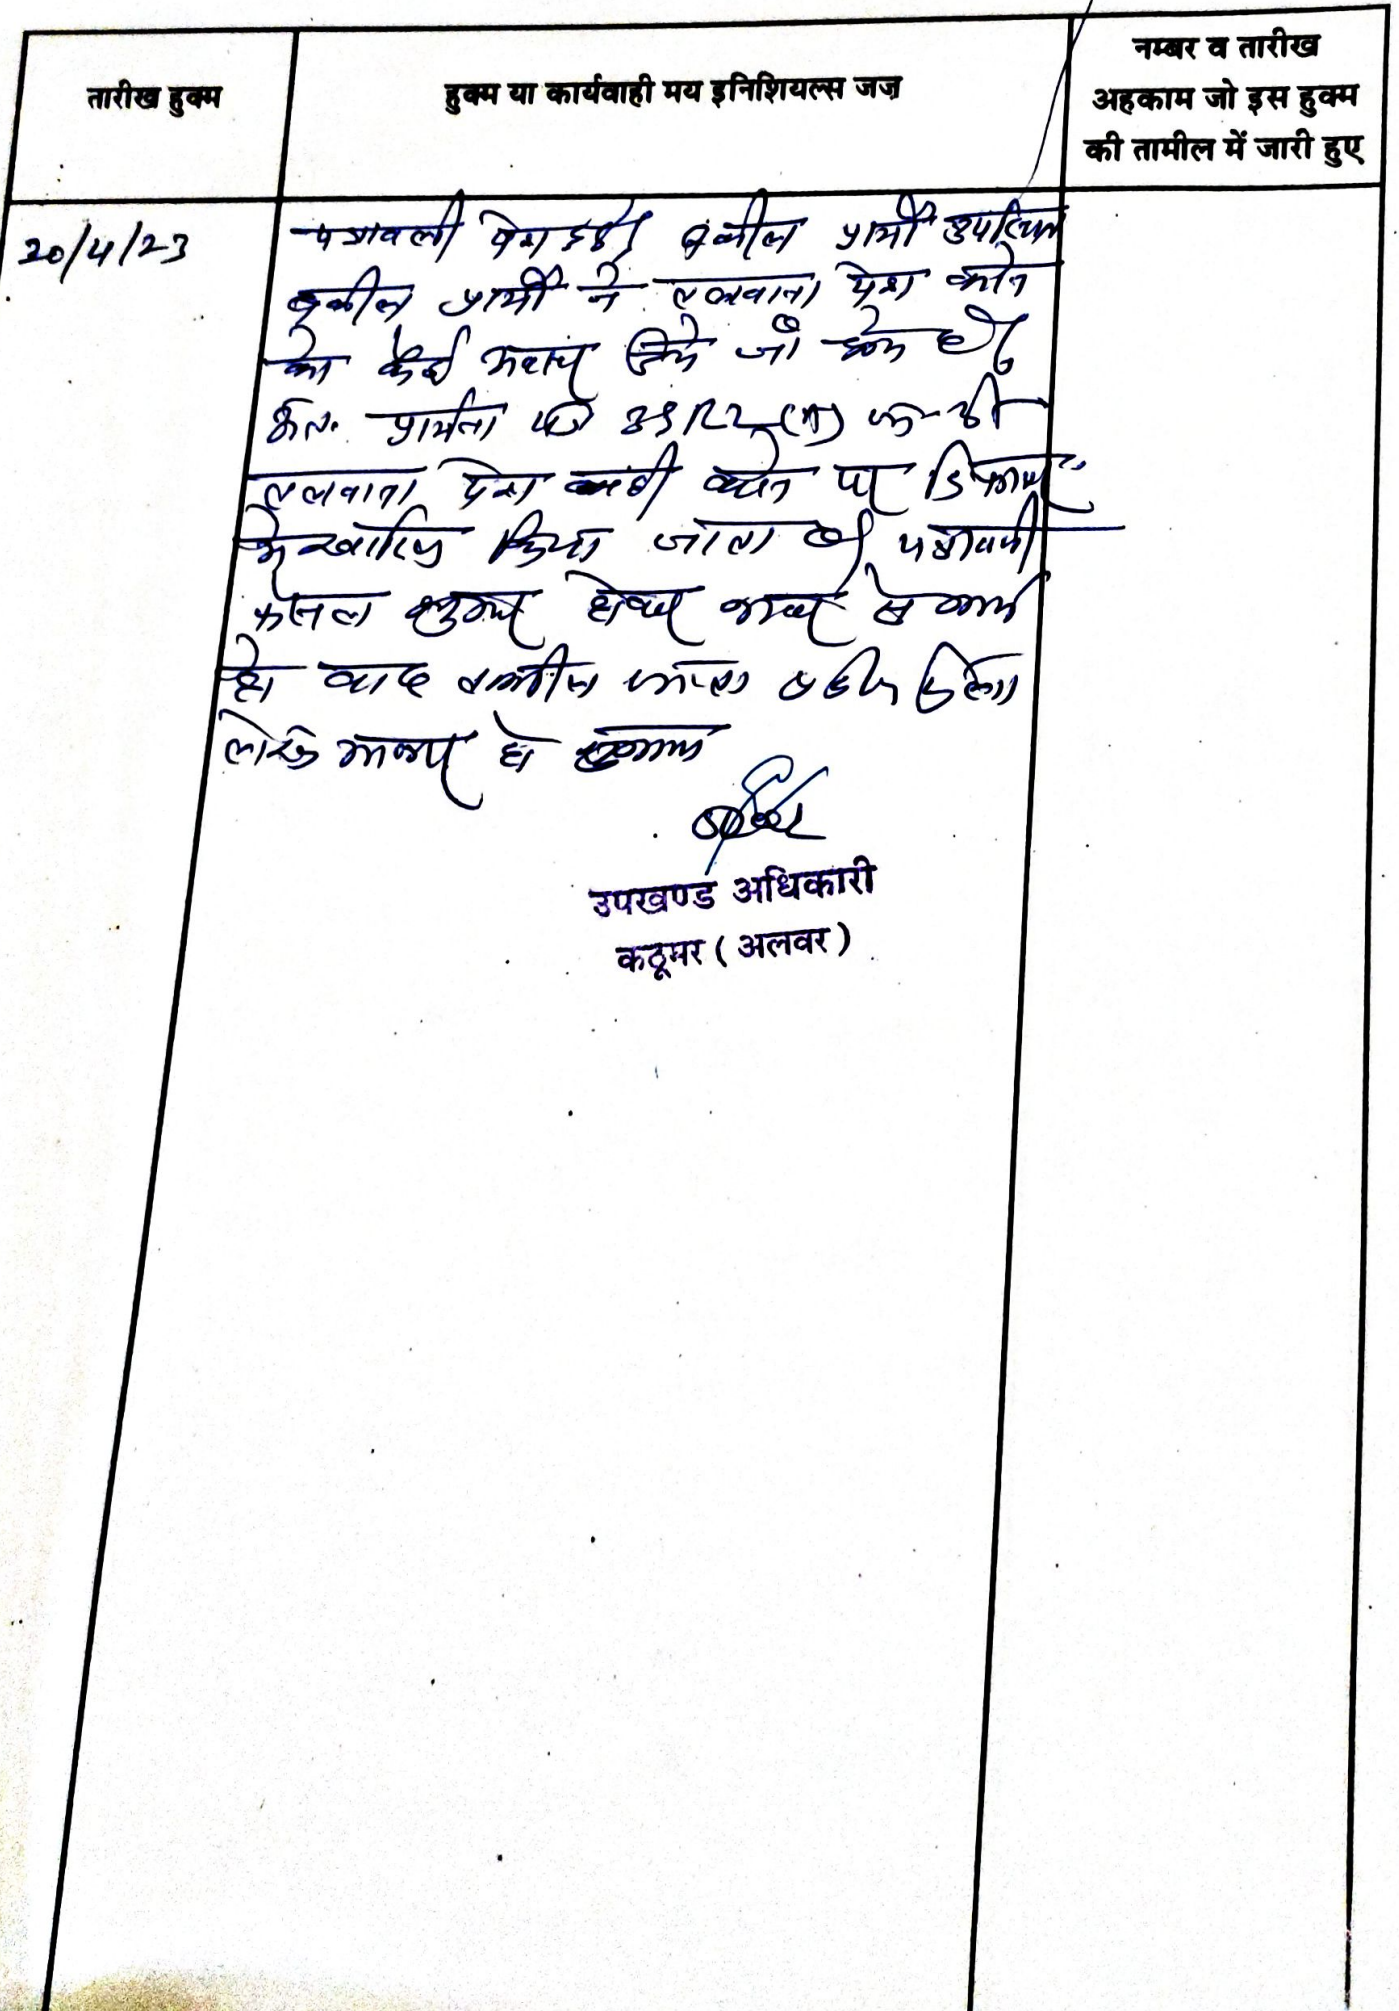 तारीख हुक्म
हुक्म या कार्यवाही मय इनिशियल्स जज
नम्बर व तारीख
अहकाम जो इस हुक्म
की तामील में जारी हुए
20/4/23
पत्रावली पेश हुई। वकील प्रार्थी उपस्थित
वकील प्रार्थी ने तलवाना पेश करने
को कई अवसर दिये जा चुके है।
अतः प्रार्थना पत्र
तलवाना पेश नही करने पर
में खारिज किया जाता है। पत्रावली
फैसल शुमार होकर नम्बर से कम
हो बाद
हो
उपखण्ड अधिकारी
कठूमर (अलवर)